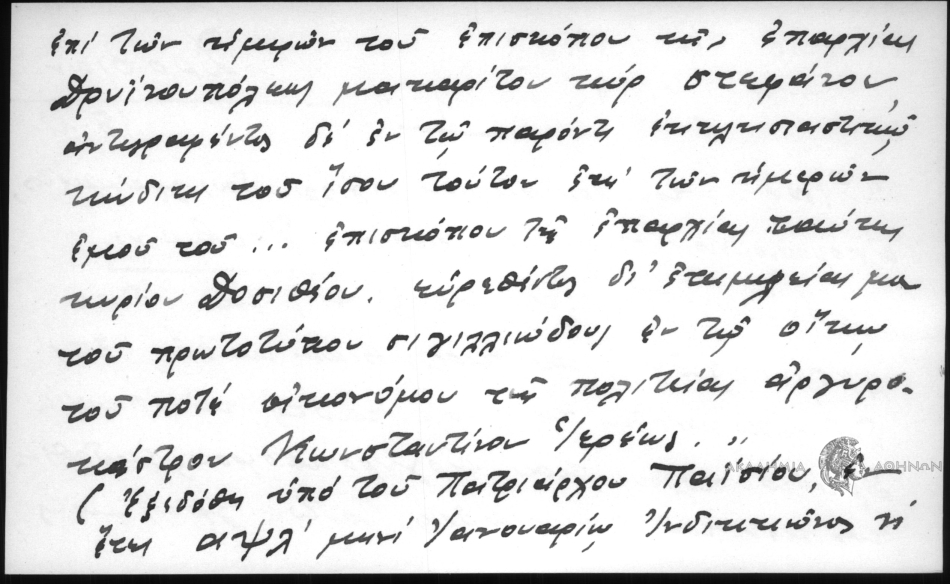 ἐπί τῶν ἡμερῶν τοῦ ἐπισκόπου τῆς ἐπαρχίας
Δρυϊνουπόλεως μακαρίτου κύρ Στεφάνου
ἀντιγραφέντος δέ ἐν τῷ παρόντι ἐκκλησιαστικῷ
κώδικι τοῦ ἴσου τούτου ἐπί τῶν ἡμερῶν
ἐμοῦ τοῦ ... ἐπισκόπου τῆς ἐπαρχίας ταύτης
κυρίου Δοσιθέου. εὑρεθέντος δι' ἐπιμελείας μου
τοῦ πρωτοτύπου σιγιλλιώδους ἐν τῷ οἴκῳ
τοῦ ποτέ οἰκονόμου τῆς πολιτείας Ἀργυρο-
κάστρου Κωνσταντίνου Ἱερέως. "
(Ἐξεδόθη ὑπό τοῦ Πατριάρχου Παϊσίου, ἐν
ἔτει αψλ' μηνί Ἰανουαρίῳ Ἰνδικτιῶνος η'
ΑΚΑΔΗΜΙΑ ΑΘΗΝΩΝ